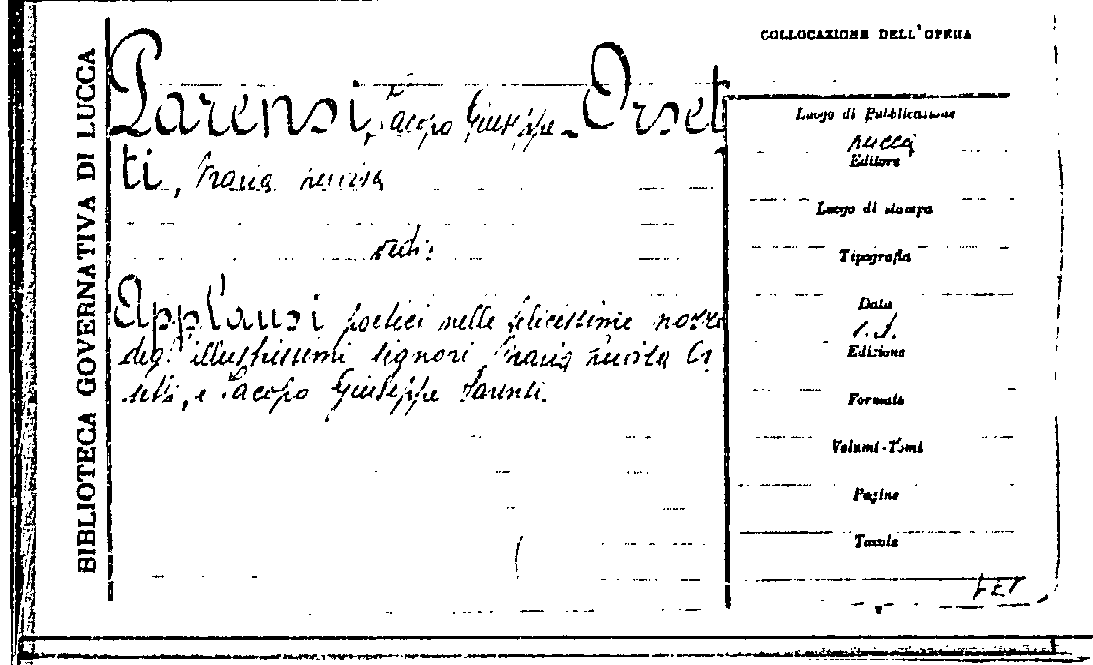 BIBLIOTECA GOVERNATIVA DI LUCCA
Parensi, Jacopo Giuseppe - Orset
ti, Maria Luisa
vedi:
Applausi poetici nelle felicissime nozze
degl'illustrissimi signori Maria Luisa Or
setti, e Jacopo Giuseppe Parensi.
COLLOCAZIONE DELL'OPERA
Luogo di Pubblicazione
Lucca
Editore
Luogo di stampa
Tipografia
Data
s.d.
Edizione
Formato
Volumi-Tomi
Pagine
Tavole